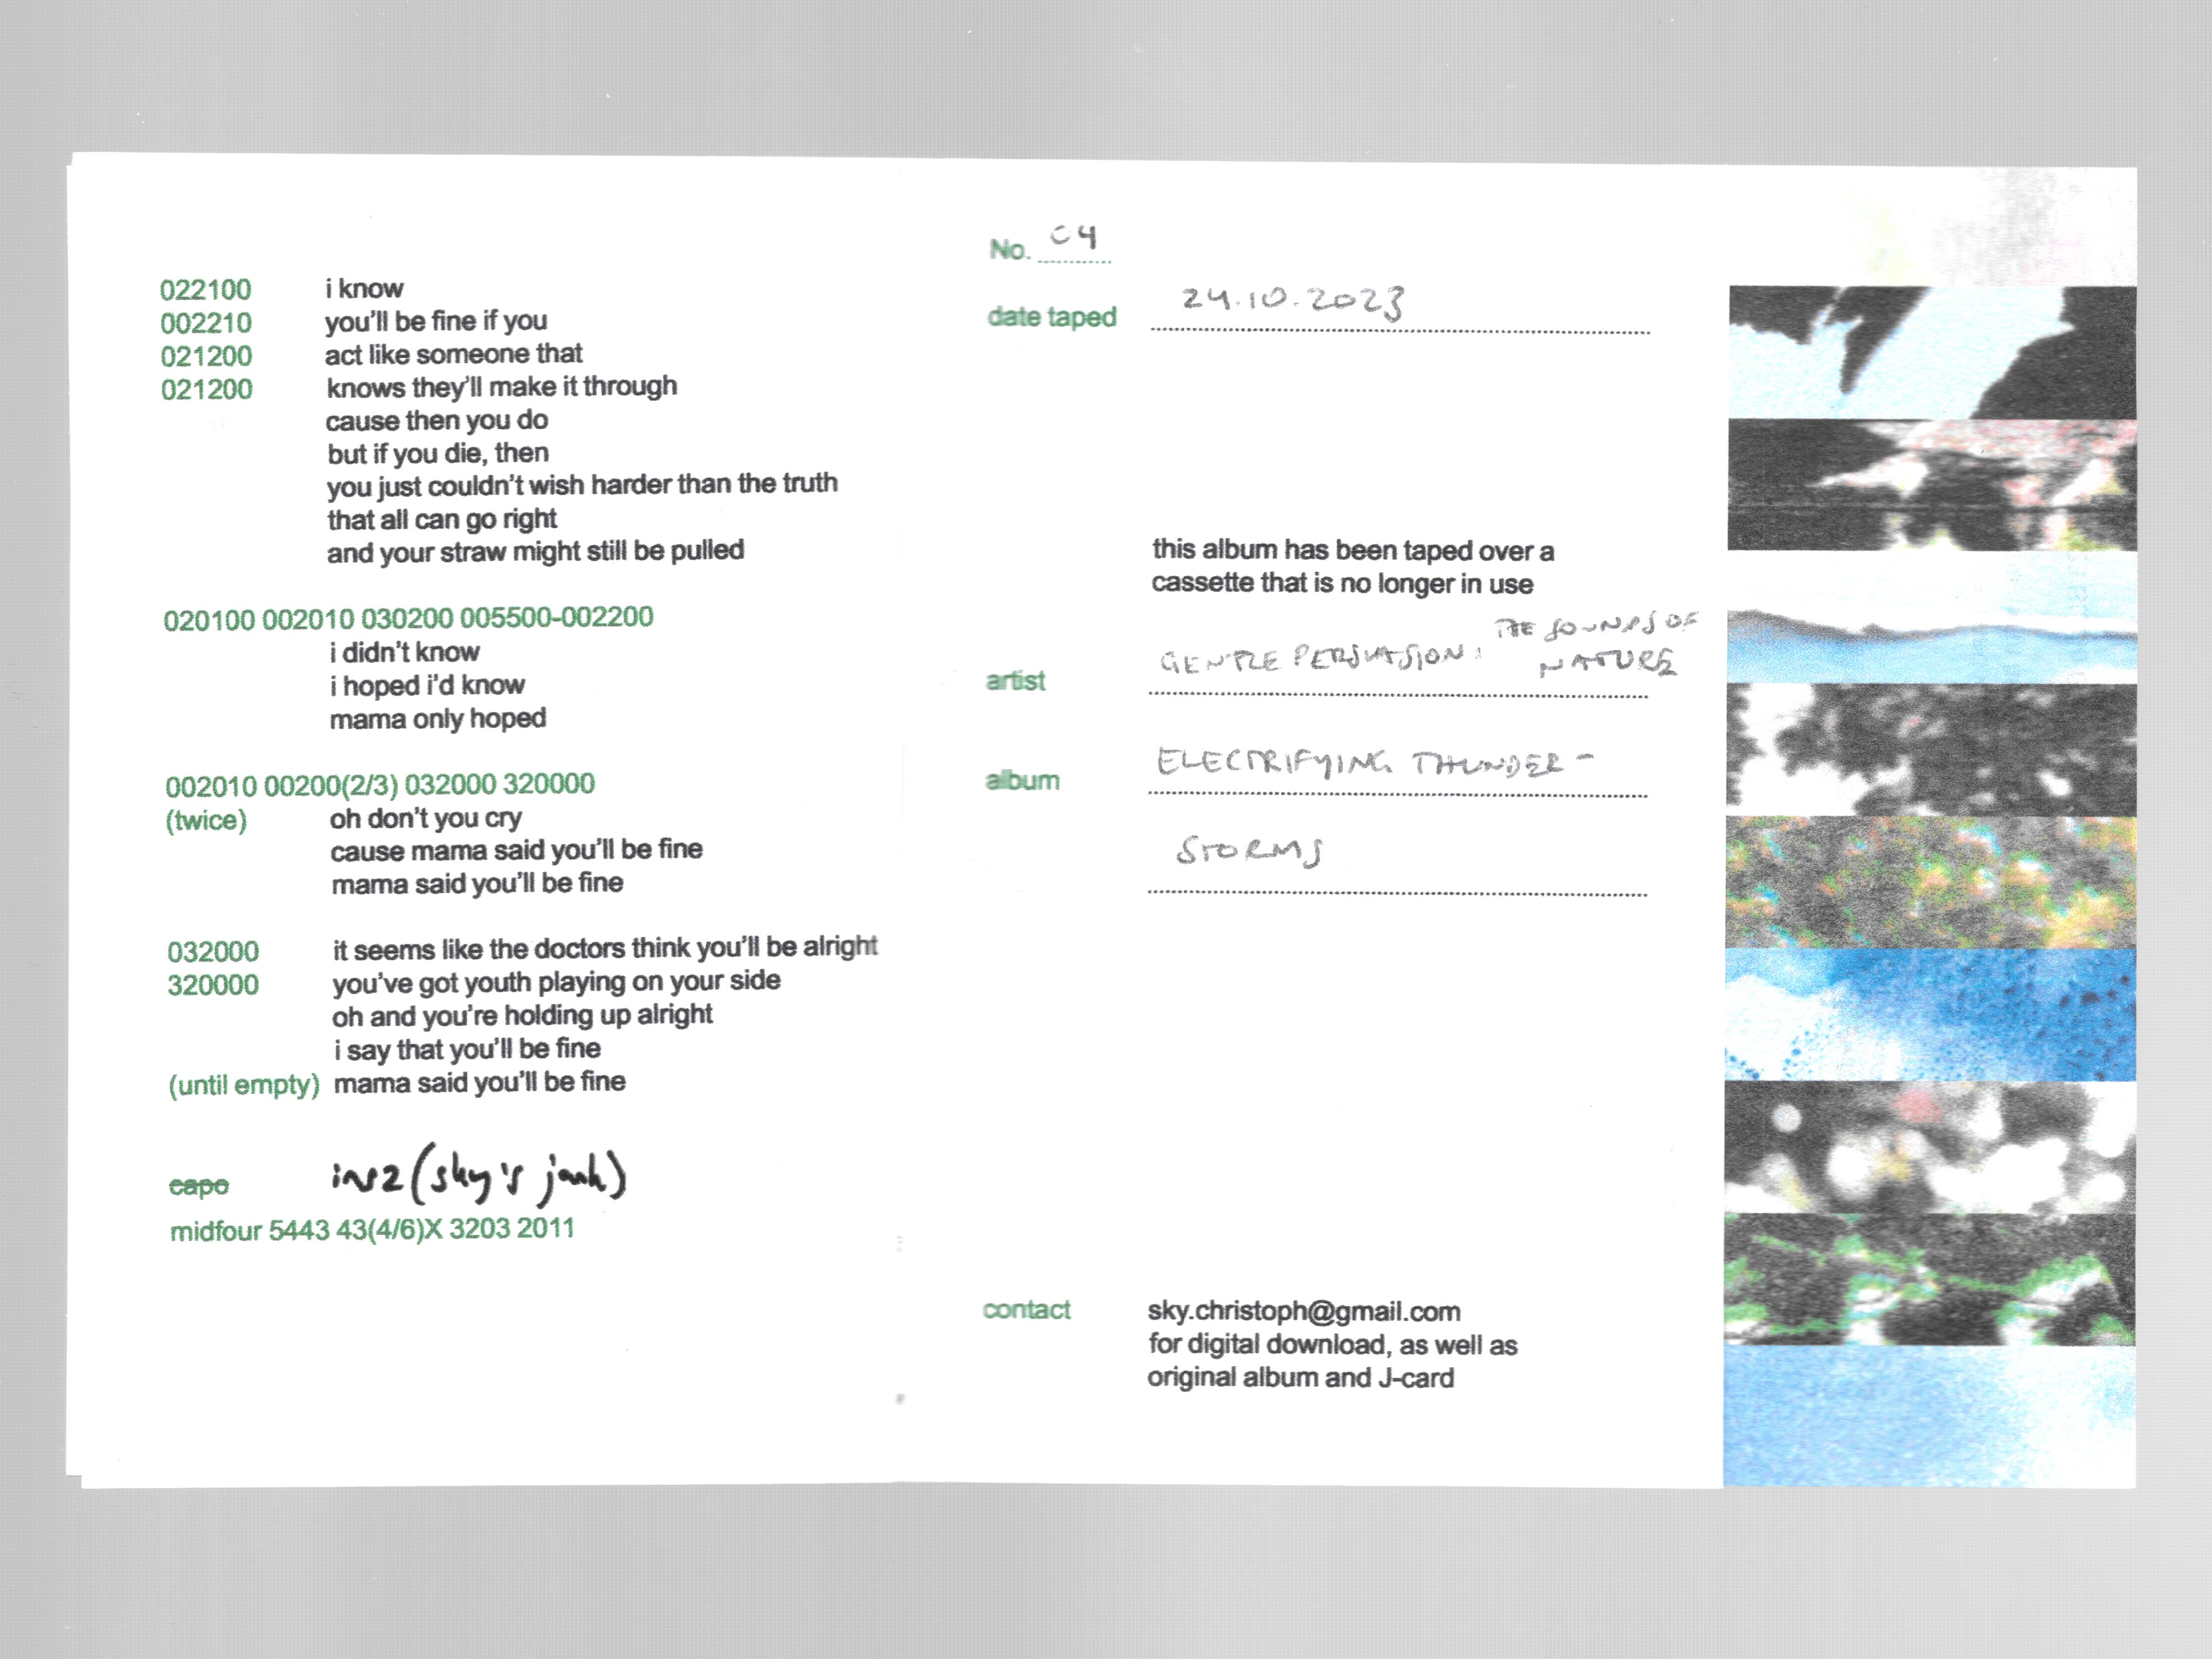 022100 i know
002210 you'll be fine if you
021200 act like someone that
021200 knows they'll make it through
cause then you do
but if you die, then
you just couldn't wish harder than the truth
that all can go right
and your straw might still be pulled
020100 002010 030200 005500-002200
i didn't know
i hoped i'd know
mama only hoped
002010 00200(2/3) 032000 320000
(twice) oh don't you cry
cause mama said you'll be fine
mama said you'll be fine
032000 it seems like the doctors think you'll be alright
320000 you've got youth playing on your side
oh and you're holding up alright
i say that you'll be fine
(until empty) mama said you'll be fine
capo (sky's
midfour 5443 43(4/6)X 3203 2011
No. 04
date taped 24.10.2023
this album has been taped over a
cassette that is no longer in use
artist GENTLE PERSUASION: THE SOUNDS OF
NATURE
album ELECTRIFYING THUNDER-
STORMS
contact sky.christoph@gmail.com
for digital download, as well as
original album and J-card